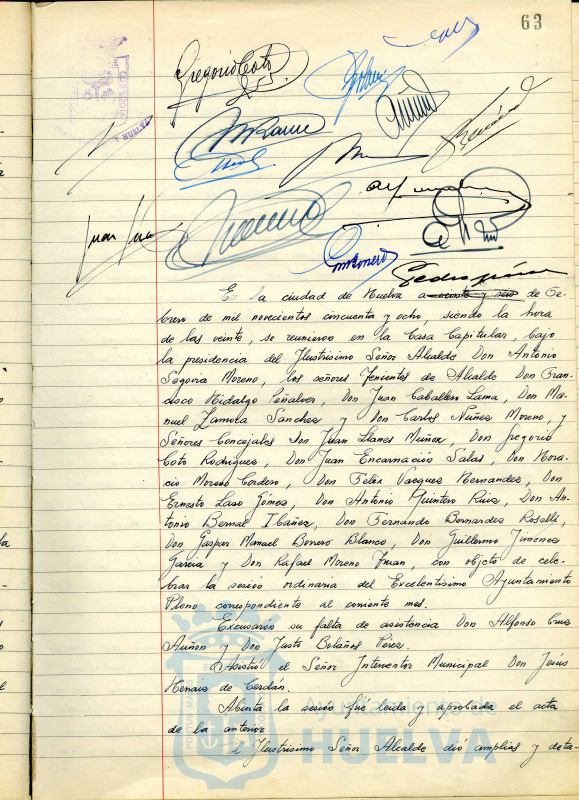 63
Gregorio Coto
Borrero
Pedro
En la ciudad de Huelva a veinte y seis de Fe-
brero de mil novecientos cincuenta y ocho, siendo la hora
de las veinte, se reunieron en la Casa Capitular, bajo
la presidencia del Ilustrisimo Señor Alcalde Don Antonio
Segovia Moreno, los señores Tenientes de Alcalde Don Fran-
cisco Hidalgo Peñalver, Don Juan Caballero Lama, Don Ma-
nuel Zamora Sanchez y Don Carlos Nuñez Moreno, y
Señores Concejales Don Juan Llanes Muñoz, Don Gregorio
Coto Rodriguez, Don Juan Encarnación Salas, Don Hora-
cio Moreno Cordero, Don Felix Vazquez Hernandez, Don
Ernesto Laso Gómez, Don Antonio Quintero Ruiz, Don An-
tonio Bernal Ibañez, Don Fernando Bernardez Roselli,
Don Gaspar Manuel Borrero Blanco, Don Guillermo Jimenez
Garcia y Don Rafael Moreno, con objeto de cele-
brar la sesión ordinaria del Excelentisimo Ayuntamiento
Pleno correspondiente al corriente mes.
Excusaron su falta de asistencia Don Alfonso Cruz
Auñon y Don Justo Bolaños Perez.
Asistió el Señor Interventor Municipal Don Jesús
Henaiz de Cerdán.
Abierta la sesión fué leida y aprobada el acta
de la anterior
Ayuntamiento de
HUELVA
El Ilustrisimo Señor Alcalde dió amplias y deta-